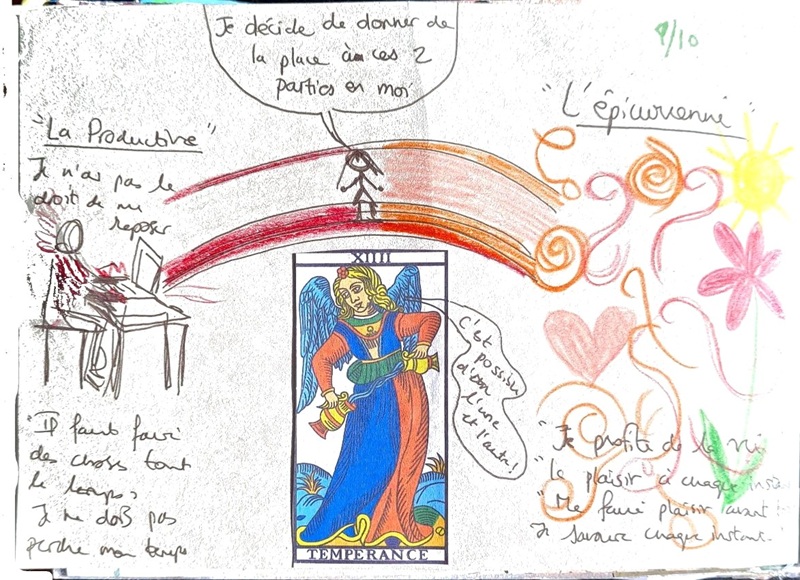 Je décide de donner de
la place à ces 2
parties en moi
9/10
"La Productive"
Je n'ai pas le
droit de me
reposer
"L'épicurienne"
XIIII
C'est
possible
d'être
l'une
et l'autre!
TEMPERANCE
"Il faut faire
des choses tout
le temps,
Je ne dois pas
perdre mon temps
"Je profite de la vie
"Le plaisir à chaque
"Me faire plaisir avant
Je savoure chaque instant.